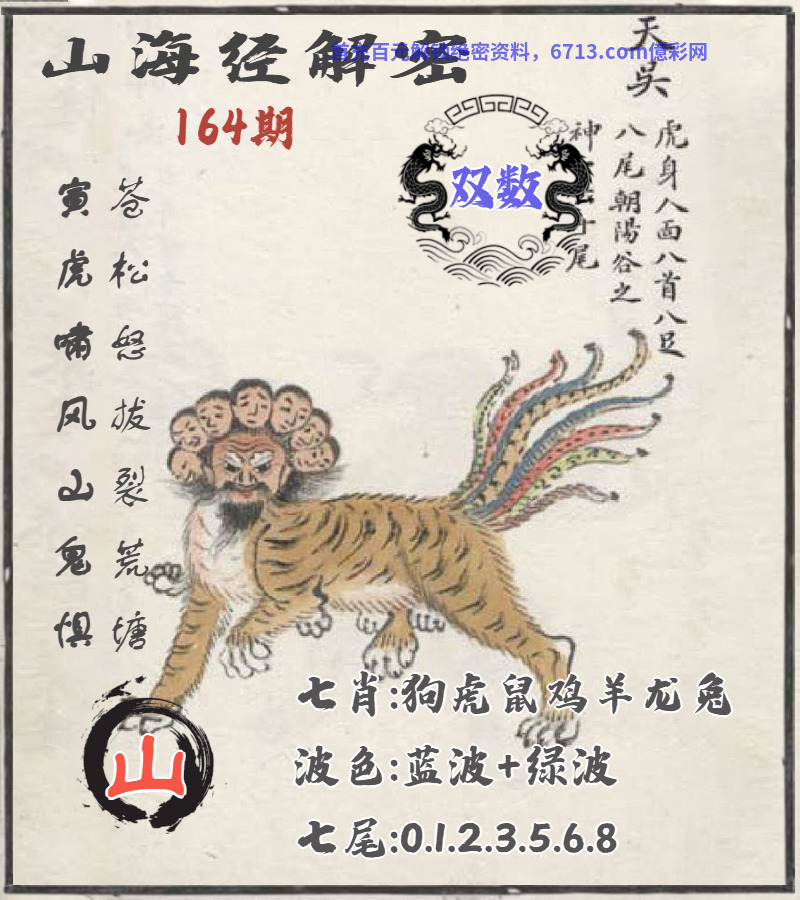 山海经解密
首存百元解锁绝密资料，6713.com億彩网
164期
天吳
虎身人面八首八足
八尾朝陽谷之
神
十尾
双数
苍松怒拔裂荒塘
寅虎啸风山鬼惧
山
七肖:狗虎鼠鸡羊龙兔
波色:蓝波+绿波
七尾:0.1.2.3.5.6.8